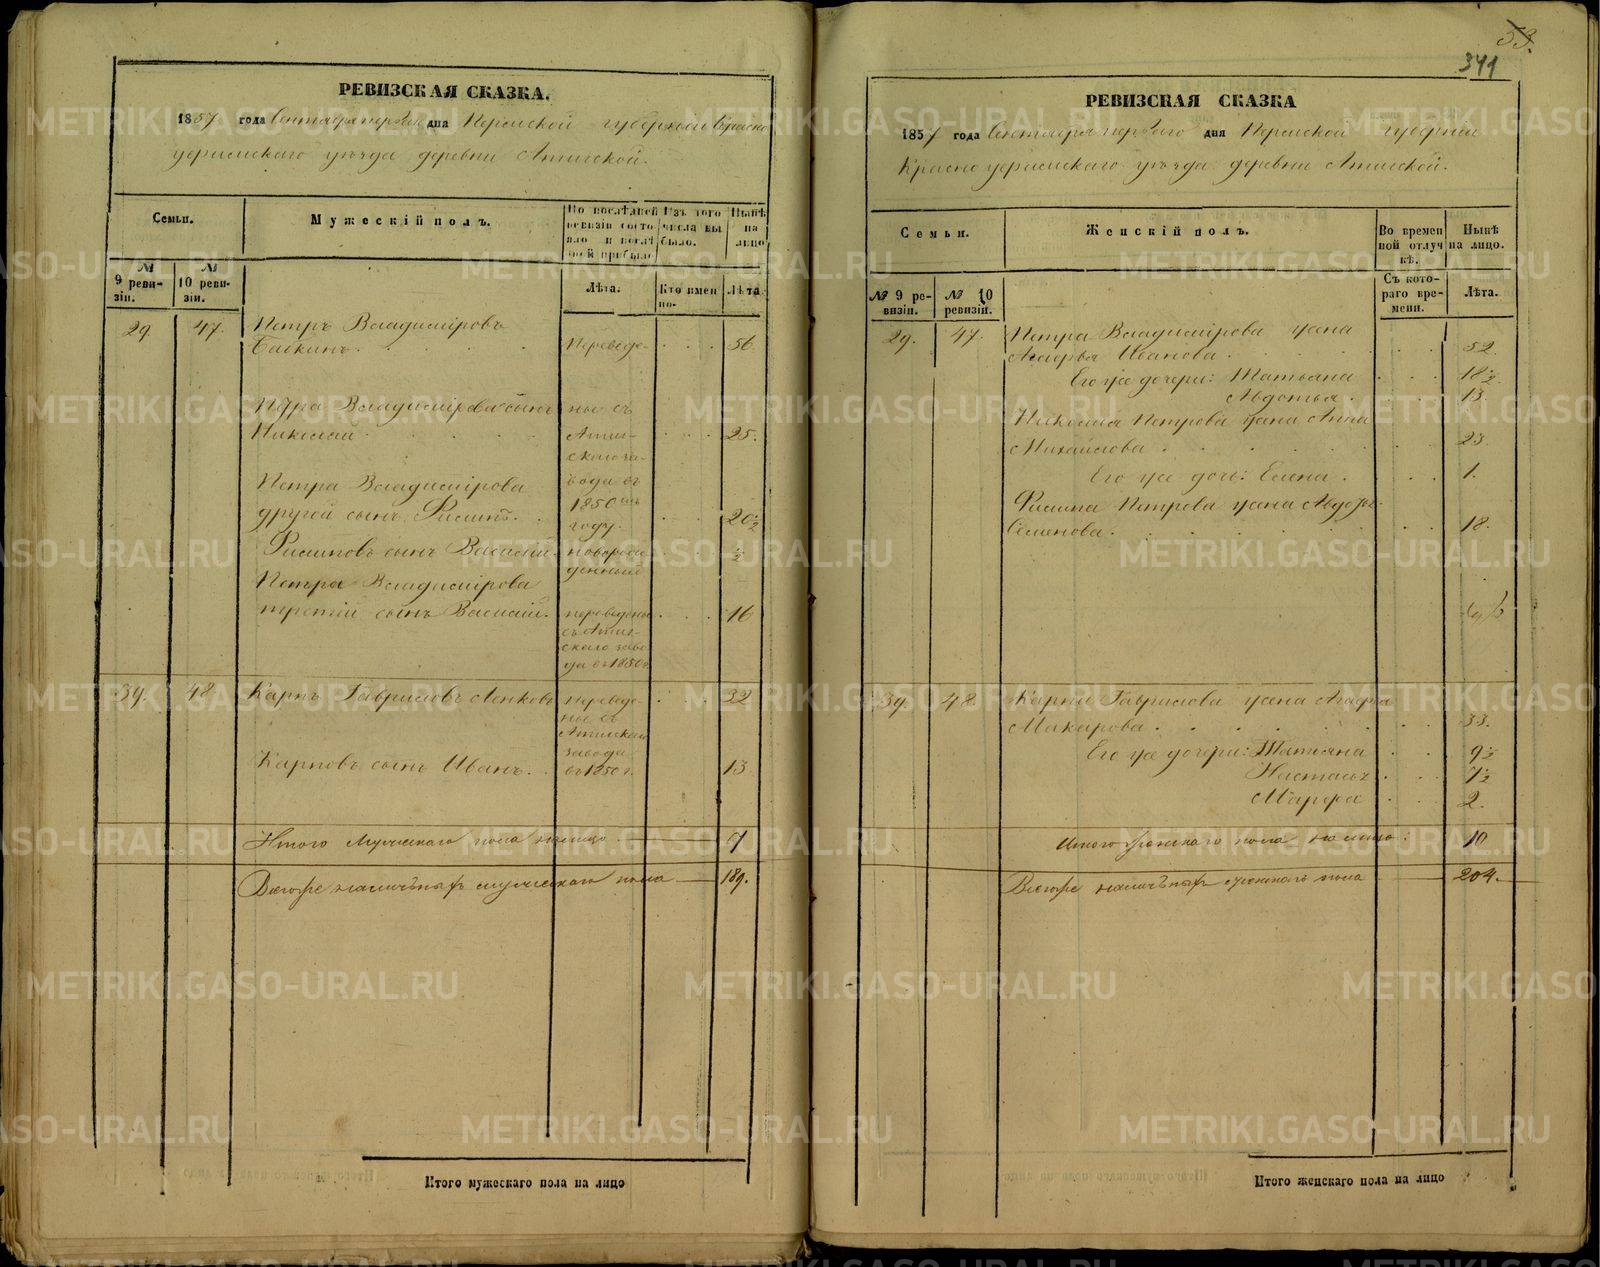 РЕВИЗСКАЯ СКАЗКА.
1857 года Сентября первого дня Пермской губернии Красно
уфимскаго уезда деревни Атигской.
Семьи.
Мужескій полъ.
По послѣдней ревизіи состояло и послѣ оной прибыло
Изъ того числа выбыло.
Нынѣ на лицо
№ 9 ревизіи.
№ 10 ревизіи.
Лѣта.
Кто именно.
Лѣта.
29. 47. Петръ Владиміровъ
Бабкинъ. Переведе- 56.
Петра Владимірова сынъ ные съ
Николай Атиг- 25.
скаго за-
Петра Владимірова вода въ
1850мъ
другой сынъ Филипъ. году. 20½
Филиповъ сынъ Василій новорож- ½
денный
Петра Владимірова
третій сынъ Василій. переведены 16
съ Атиг-
скаго заво-
да въ 1850 г.
39. 48. Карпъ Гавриловъ Ленковъ переведе- 32
ные съ
Атигскаго
завода
Карповъ сынъ Иванъ. въ 1850 г. 13.
Итого мужескаго пола налицо 7
Всего же наличныхъ мужескаго пола 189.
Итого мужескаго пола на лицо
53.
341
РЕВИЗСКАЯ СКАЗКА
1857 года Сентября первого дня Пермской губерніи
Красноуфимскаго уѣзда деревни Атигской.
Семьи.
Женскій полъ.
Во временной отлучкѣ.
Нынѣ на лицо.
№ 9 ревизіи.
№ 10 ревизіи.
Съ котораго времени.
Лѣта.
29. 47. Петра Владимірова жена
Агафья Иванова. 52.
Его же дочери: Татьяна 18½
Авдотья. 13.
Николая Петрова жена Анна
Михайлова 23.
Его же дочь: Елена. 1.
Филипа Петрова жена Авдотья
Семенова. 18.
39. 48. Карпа Гаврилова жена Агафья
Макарова. 33.
Его же дочери: Татьяна 9½
Настасья 7½
Марфа 2.
Итого женскаго пола на лицо: 10
Всего же наличныхъ женскаго пола 204.
Итого женскаго пола на лицо
METRIKI.GASO-URAL.RU